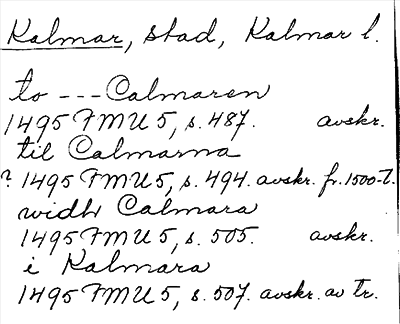 Kalmar, stad, Kalmar l.
to --- Calmaren
1495 FMU 5, s. 487. avskr.
til Calmarna
? 1495 FMU 5, s. 494. avskr. fr. 1500-t.
widh Calmara
1495 FMU 5, s. 505. avskr.
i Kalmara
1495 FMU 5, s. 507. avskr. av tr.